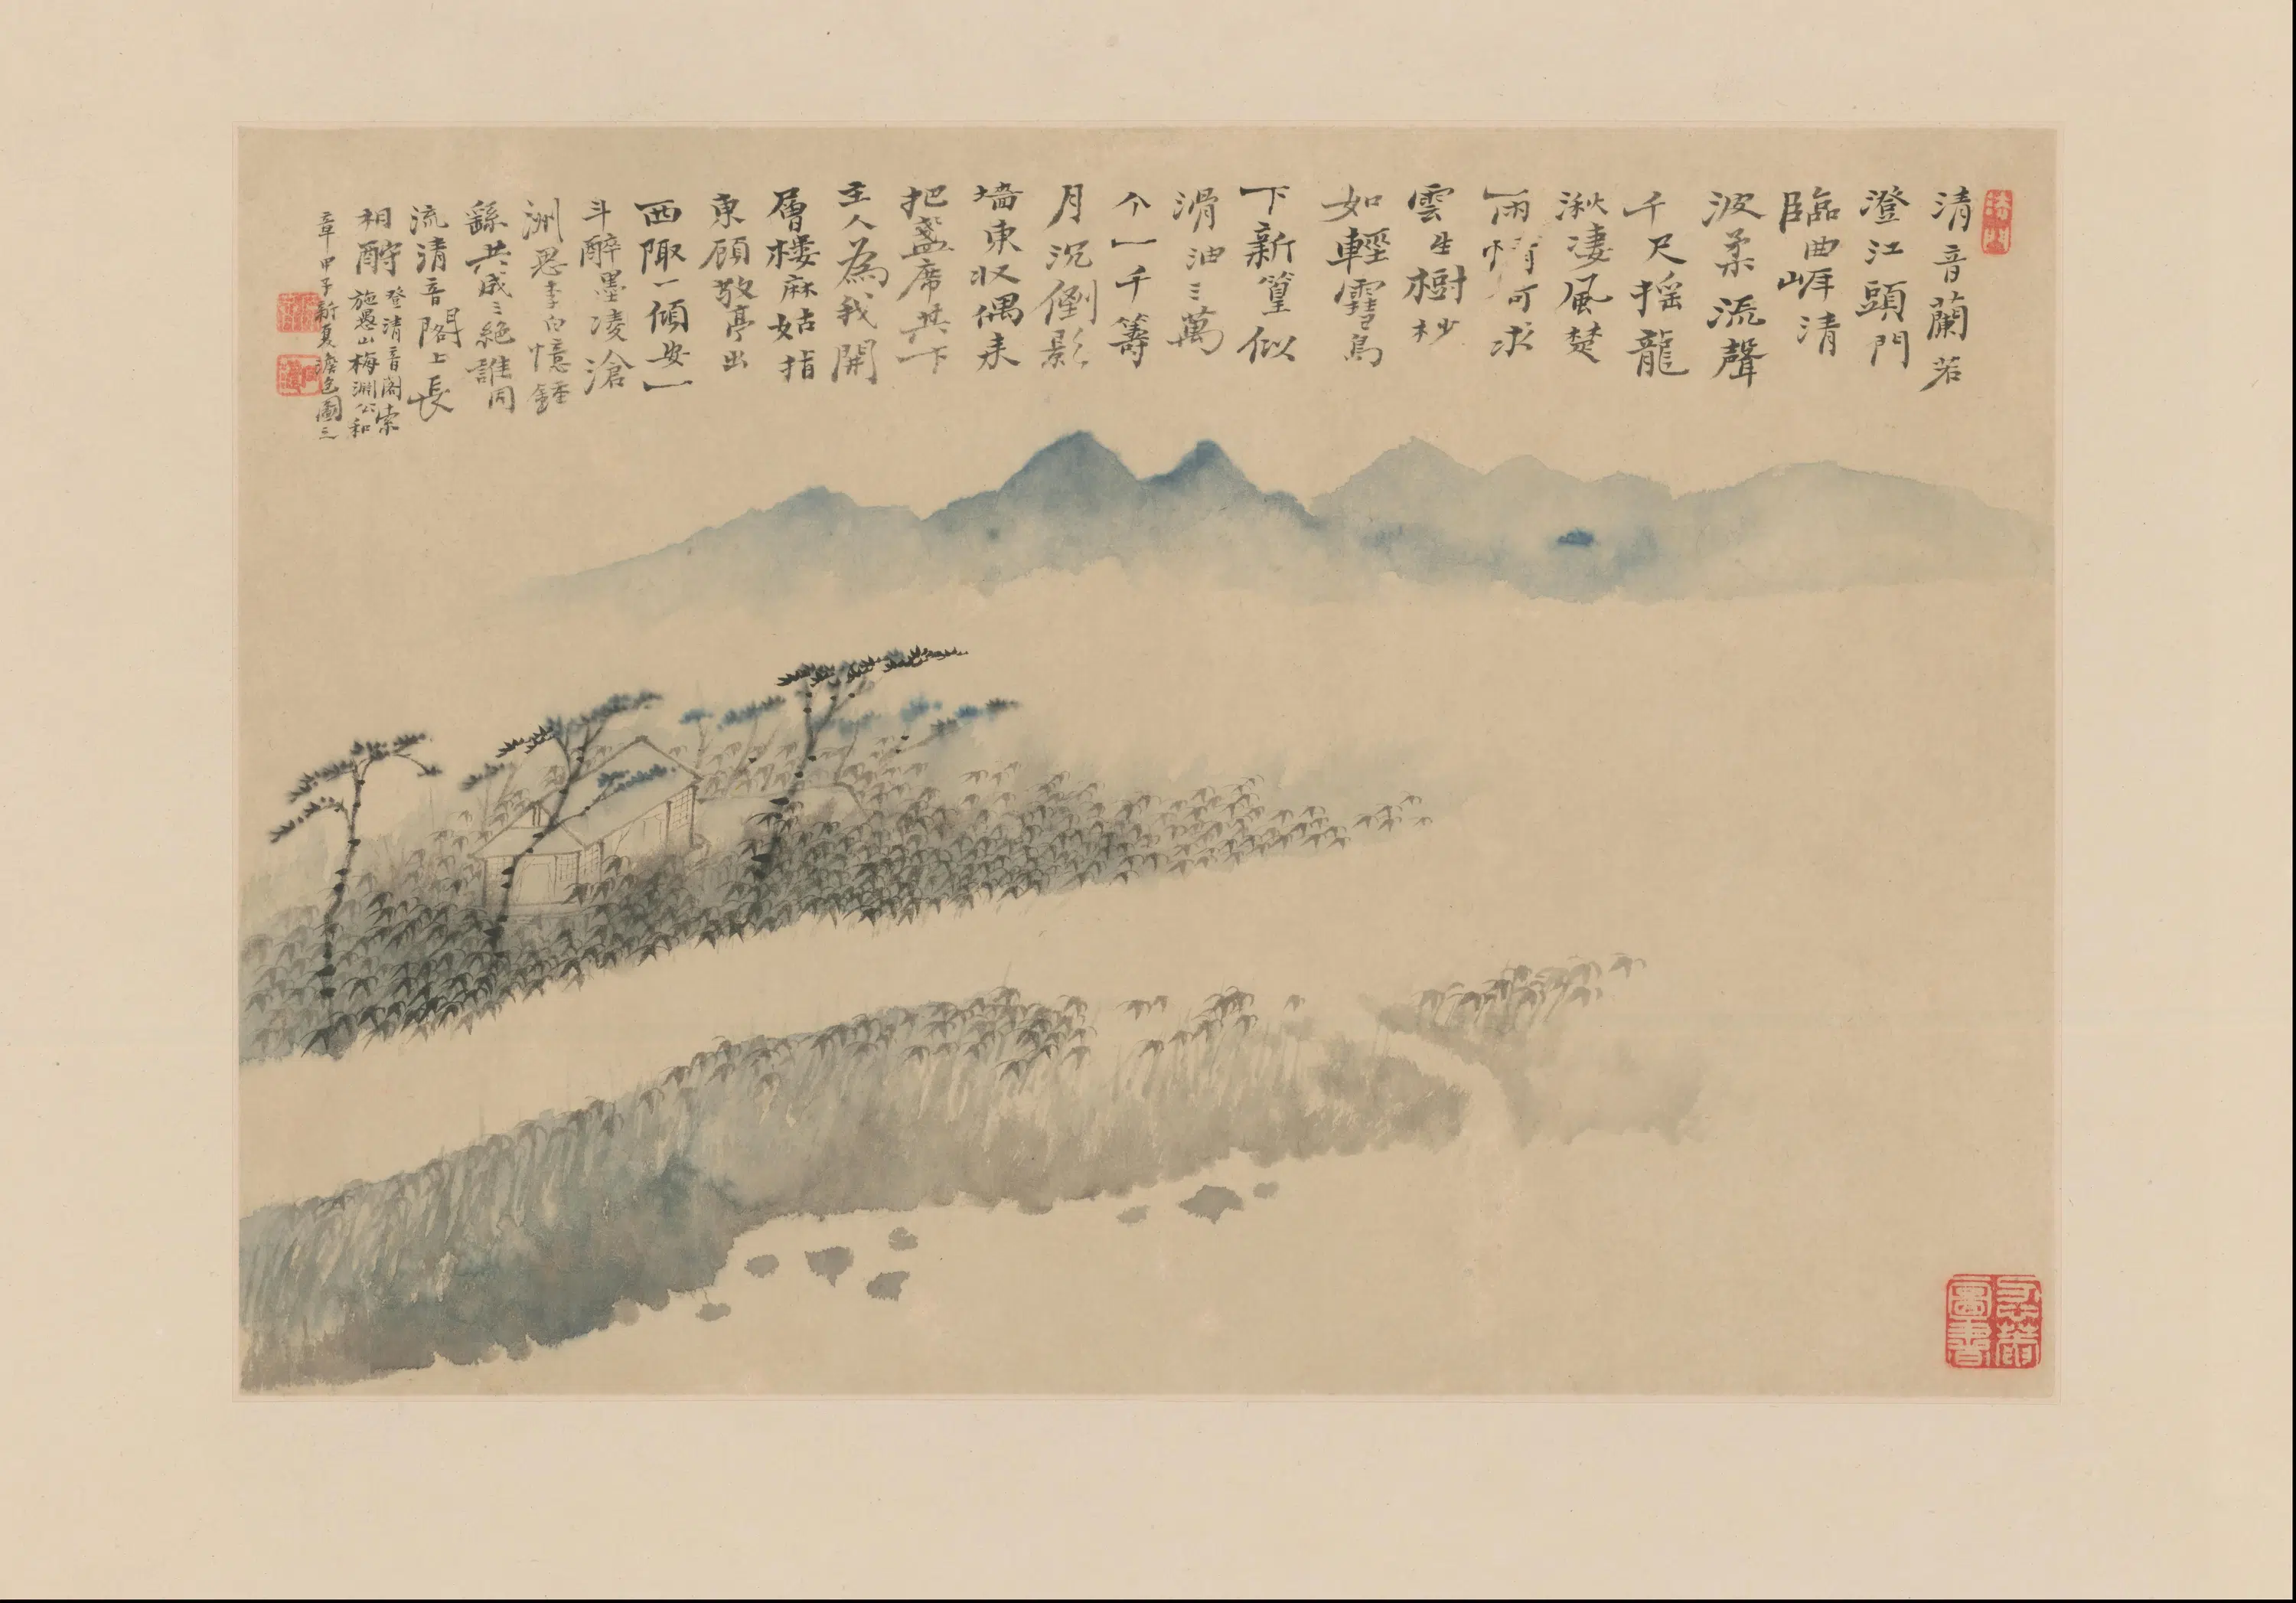 清音蘭若
澄江頭門
臨曲崕清
波柔流聲
千尺搖龍
湫淒風楚
雨情可求
雲生樹杪
如輕雪鳥
下新篁似
滑油〻萬
个一千籌
月沉倒影
墻東收偶来
把盞席共下
主人為我開
層樓麻姑指
東顧敬亭出
西陬一傾安一
斗醉墨凌滄
洲思李白憶鍾
繇共成〻絕誰同
流清音閣上長
相酧
登清音閣索
施愚山梅淵公和
章甲子新夏澹色圖三